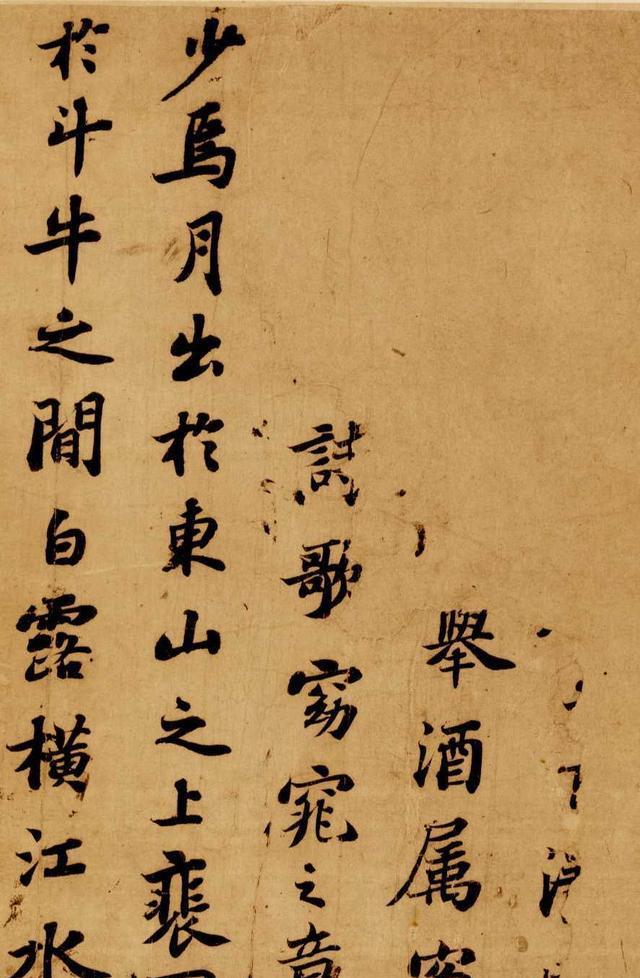 舉酒属客
歌窈窕之章
少焉月出於東山之上裴
於斗牛之間白露橫江水